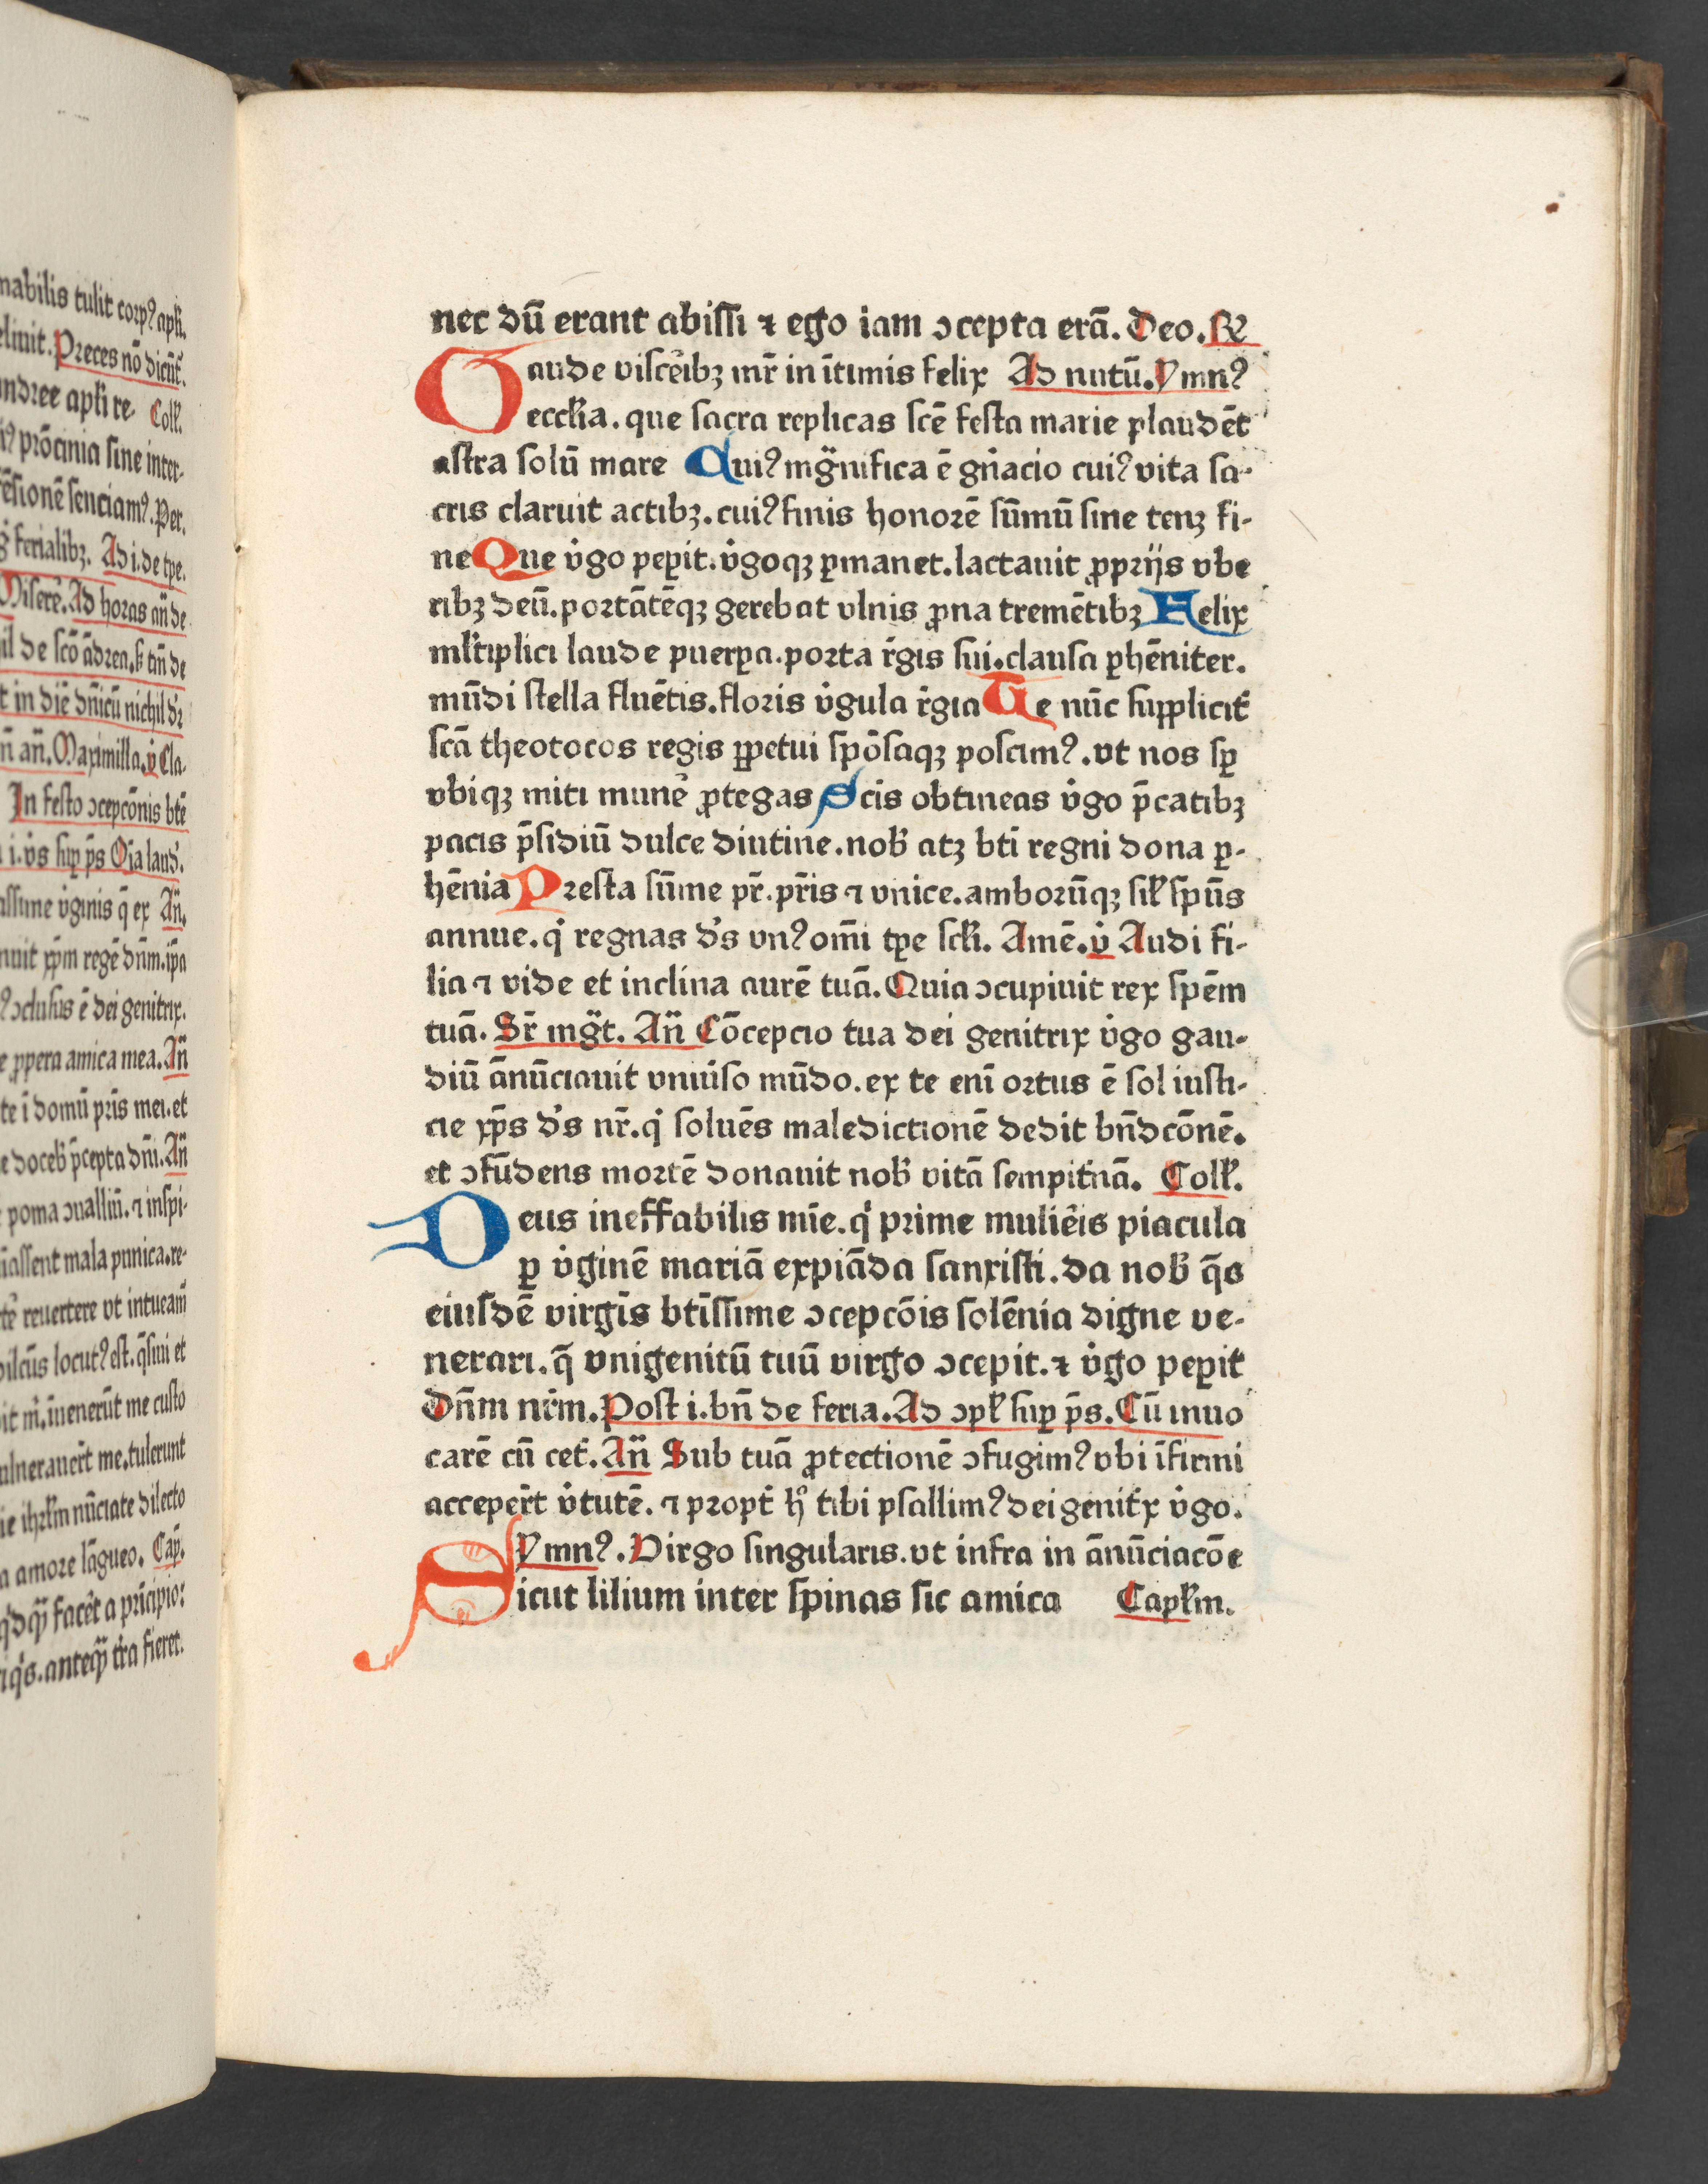 nabilis tulit corpꝰ apli.
elinit. Preces nō dicūt᷑.
andree apli re- Coll.
iꝰ prōcinia sine inter-
rēsionē senciamꝰ. Per.
ferialibꝫ. Ad i. de tpe.
Miserē. Ad horas an̄ de
il de scō ādrea. s tm̄ de
t in diē dn̄icū nichil dr̄
n̄ an̄. Maximilla. v̓ Cla-
In festo ↄcepcōnis btē
i. v̓s sup ps̄ Oīa laud̓.
assime v̓ginis q̄ ex An̄.
nuit xp̄m regē dn̄m. ip̄a
ꝰ ↄclusus ē dei genitrix.
e ꝓpera amica mea. An̄
te ī domū pr̄is mei. et
e doceb̓ p̄cepta dn̄i. An̄
poma ↄualliū. ⁊ inspi-
iassent mala punica. re-
rtē reuertere vt intueam̄
dilcūs locutꝰ est. q̄siui et
it m̓. īuenerūt me custo
vulnerauer̄t me. tulerunt
ie ihrl̄m nūciate dilecto
a amore lāgueo. Cap̄.
q̓dqꝫ facēt a prīcipio:
iq̓s. anteqꝫ tr̄a fieret.
nec dū erant abissi ⁊ ego iam ↄcepta erā. Deo. R̄
Gaude viscēibꝫ mr̄ in ītimis felix Ad nutū. Ymnꝰ
eccl̄ia. que sacra replicas scē festa marie plaudēt
astra solū mare Cuiꝰ mḡnifica ē gn̄acio cuiꝰ vita sa-
cris claruit actibꝫ. cuiꝰ finis honorē sūmū sine tenꝫ fi-
ne Que v̓go peꝑit. v̓goqꝫ ꝑmanet. lactauit ꝓprijs vbe
ribꝫ deū. portātēqꝫ gerebat vlnis ꝓna tremētibꝫ Felix
ml̄tiplici laude puerꝑa. porta r̄gis sui. clausa ꝑhēniter.
mūdi stella fluētis. floris v̓gula r̄gia Te nūc supplicit̓
scā theotocos regis ꝑpetui spōsaqꝫ poscimꝰ. vt nos sꝑ
vbiqꝫ miti munē ꝓtegas Scis obtineas v̓go p̄catibꝫ
pacis p̄sidiū dulce diutine. nob̓ atꝫ bti regni dona ꝑ-
hēnia Presta sūme pr̄. pr̄is ⁊ vnice. amborūqꝫ sil̓ spūs
annue. q̓ regnas d̓s vnꝰ om̄i tꝑe scl̓i. Amē. v̓ Audi fi-
lia ⁊ vide et inclina aurē tuā. Quia ↄcupiuit rex spēm
tuā. Sr̄ mḡt. An̄ Cōcepcio tua dei genitrix v̓go gau-
diū ānūciauit vniūso mūdo. ex te eni ortus ē sol iusti-
cie xp̄s d̓s nr̄. q̓ soluēs maledictionē dedit bn̄dcōnē.
et ↄfūdens mortē donauit nob̓ vitā sempit̓nā. Coll.
Deus ineffabilis mīe. q̓ prime muliēis piacula
ꝑ v̓ginē mariā expiāda sanxisti. da nob̓ q̄s
eiusdē virgīs btīssime ↄcepcōis solēnia digne ve-
nerari. q̄ vnigenitū tuū virgo ↄcepit. ⁊ v̓go peꝑit
dn̄m nr̄m. Post i. bn̄ de feria. Ad ↄpl̓ suꝑ ps̄. Cū inuo
carē cū cet̓. An̄ Sub tuā ꝓtectionē ↄfugimꝰ vbi īfirmi
acceper̄t v̓tutē. ⁊ propt̓ h̊ tibi psallimꝰ dei genit̓x v̓go.
Ymnꝰ. Virgo singularis. vt infra in ānūciacōe
Sicut lilium inter spinas sic amica Capl̓m.